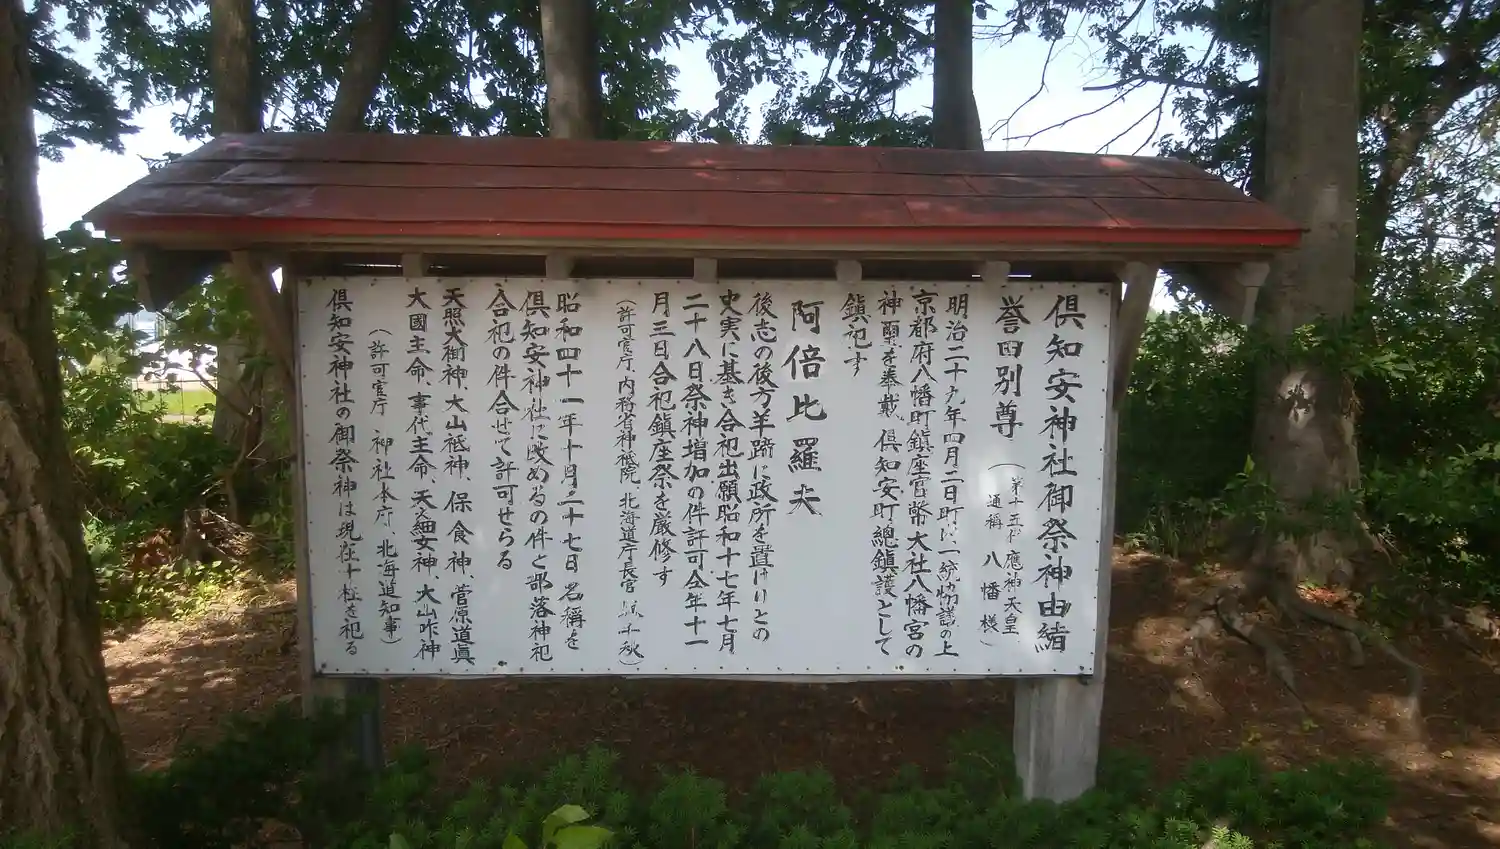 倶知安神社御祭神由緒
誉田別尊
(第十五代 應神天皇
通稱 八幡様)
明治二十九年四月二日町に一統協議の上
京都府八幡町鎮座官幣大社八幡宮の
神霊を奉戴、倶知安町總鎮護として
鎮祀す
阿倍比羅夫
後志の後方羊蹄に政所を置けりとの
史実に基き合祀出願昭和十七年七月
二十八日祭神増加の件許可仝年十一
月三日合祀鎮座祭を厳修す
(許可官庁、内務省神祇院、北海道庁長官 千秋)
昭和四十一年十月二十七日名稱を
倶知安神社に改めるの件と部落神祀
合祀の件合せて許可せらる
天照大御神、大山祗神、保食神、菅原道眞
大國主命、事代主命、天之細女神、大山咋神
(許可官庁 神社本庁、北海道知事)
倶知安神社の御祭神は現在十柱を祀る